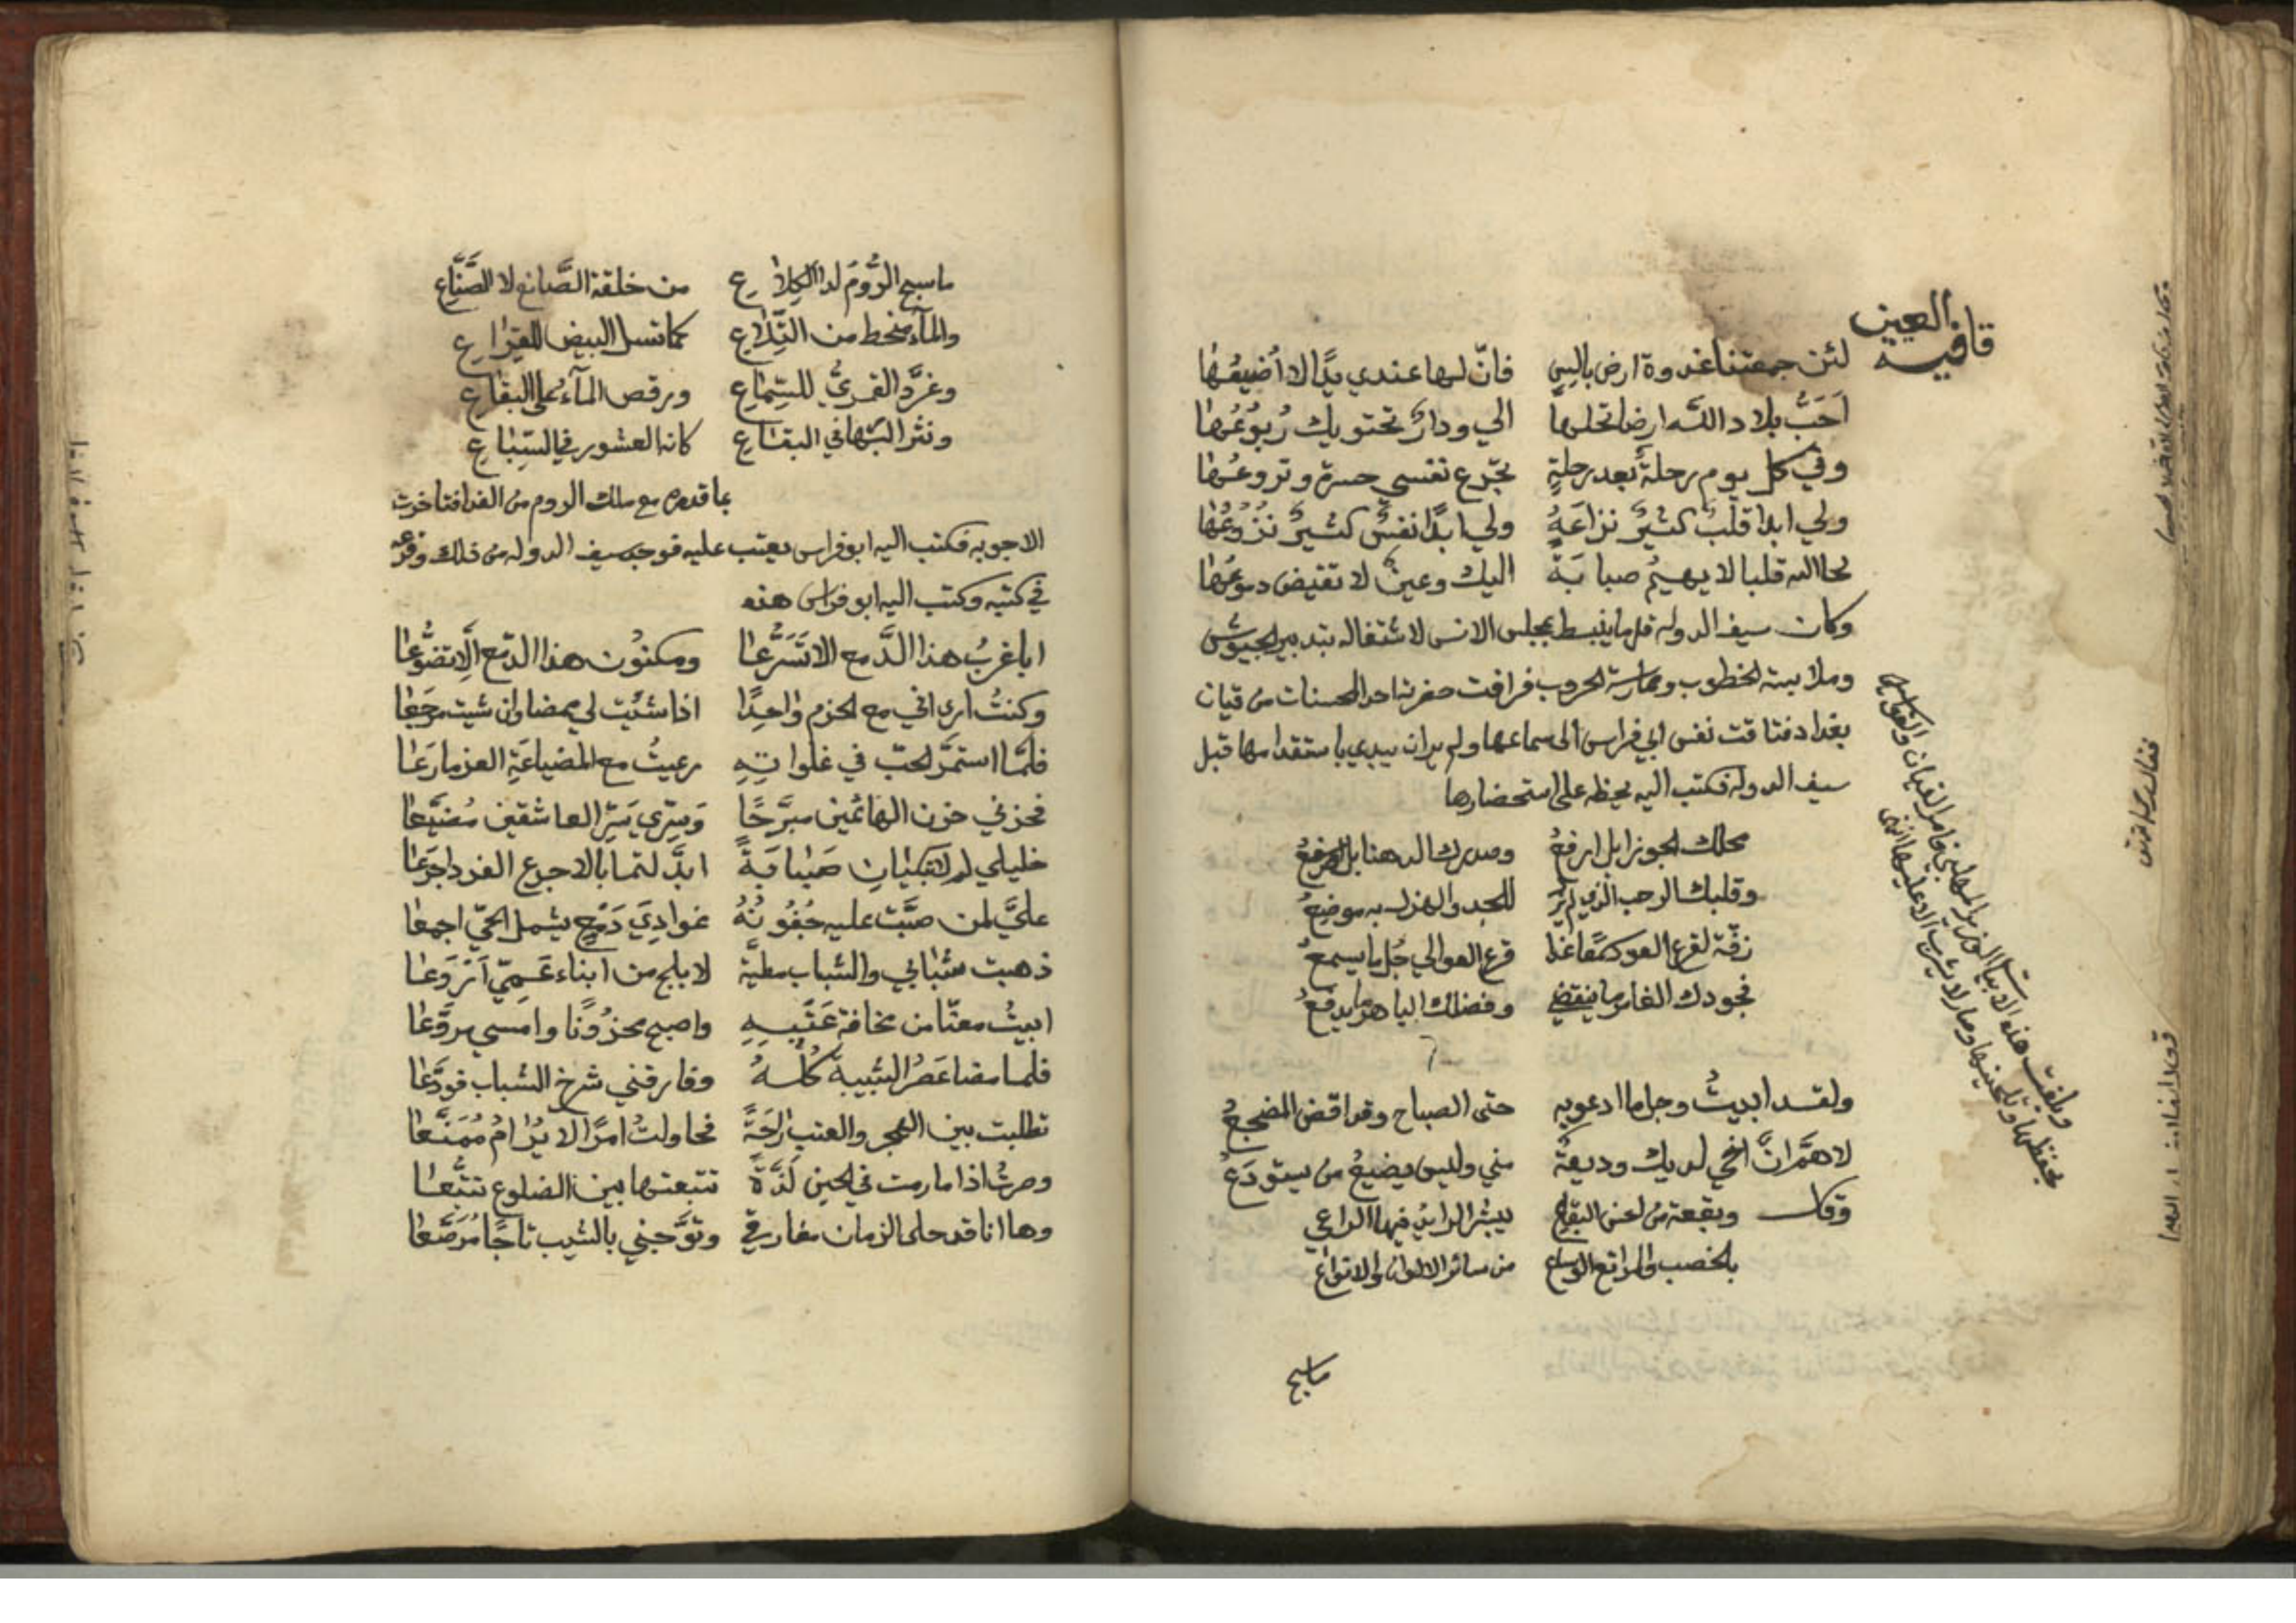 قافية العين
لئن جمعتنا غدوة ارض بالس فانّ لها عندي يدًا لا أضيعُها
اَحَبُّ بلاد الله ارض تحلها الي ودارٌ تحتويك رُبوعُها
وفي كل يوم رحلةٌ بعد رحلةٍ تجرّع نفسي حسرة وتروعُها
ولي ابدا قلبٌ كثيرٌ نزاعَهُ ولي ابدًا نفسٌ كثيرٌ نزُوعُها
لحا الله قلبا لا يهيمُ صبابَةً اليك وعينٌ لا تفيض دموعُها
وكان سيف الدوله قل ما ينبسط بمجلس الانس لاشتغاله بتدبير الجيوش
وملابسة الخطوب وممارسة الحروب فرافت حضرته احد المحسنات من قيان
بغداد فتاقت نفس ابي فراس الى سماعها ولم ير ان يبدي باستقدامها قبل
سيف الدوله فكتب اليه يحظه على استحضارها
محلك الجوزا بل ارفعُ وصدرك الدهنا بل اوسعُ
وقلبك الرحب الذي لم يزل للجد والهزل به موضعُ
رَفّه لقرع العود سمعًا غدا قرع العوالي جُل ما يسمعُ
فجودك الغامر ما ينقضي وفضلك الباهر ما يدفعُ
ولقد ابيتُ وجل ما ادعو به حتى الصباح وقد اقض المضجعُ
لاهمّ انّ اخي لديك وديعةٌ مني وليس يضيعُ من يستودَعُ
وقال وبقعة من احسن البقاع يبشر الرايد فيها الراعي
بالخصب والمرابع الوساع من سائر الالوان والانواع
ما سبح
وبلغت هذه الابيات الوزير المهلبي فامر القيان والقوالين
بحفظها وتلحينها وصار لا يشرب الا عليها انتهى
ما سبح الرُّومُ لذا الكِلاع من خلقة الصَّانع لا الصُّنَّاع
والمآء منحط من التِّلاع كما تسل البيض للقِراع
وغرَّد القمريُّ للسِّماع ورقص المآءُ على البقاع
ونثر البها في البقاع كانه العشور في السِّباع
بما قدمه مع ملك الروم من الفدا فتاخرت
الاجوبه فكتب اليه ابو فراس يعتب عليه فوجد سيف الدوله من ذلك وقرعه
في كتبه وكتب اليه ابو فراس هذه
ايا غربُ هذا الدَّمع الا تَسَرُّعا ومكنوُن هذا الدّمع اِلّا تضوُّعا
وكنتُ ارى اني مع الحزم واحِدًا اذا شئت لي ممضا وان شيت مرجَعا
فلمّا استمرَّ الحبّ في غلواتِهِ رعيتُ مع المضياعَةِ العز ما رَعَا
فحزني حزن الهائمين مبرَّحًا وَسِرّي سِرّ العاشقين مُضيَّعا
خليلي لم لا تبكيان صَبابَةً ابدَّلتما بالاجرع الفرد اجرَعا
عليَّ لمن ضنَّت عليه جُفُونُهُ غوادِيَ دَمْعٍ يشمل الحيّ اجمعا
ذهبت شبابي والشباب مطيَّة لابلج من ابناء عَمِيّ اَرْوَعا
ابيتُ معنّا من مخافة عَتبِهِ واصبح محزُونًا وامسي مروَّعا
فلما مضا عَصرُ الشبيبة كُلُّهُ وفارقني شرخ الشباب فودَّعا
تطلبت بين الهجر والعتب راحَةً فحاولتُ امرًا لا يُرامُ مُمَنَّعا
وصرتُ اذا ما رمت في الحين لَذَّةً تتبعتها بين الضلوع تتبُّعا
وها انا قد حلى الزمان مفارقي وتوَّجني بالشيب تاجًا مُرَصَّعا